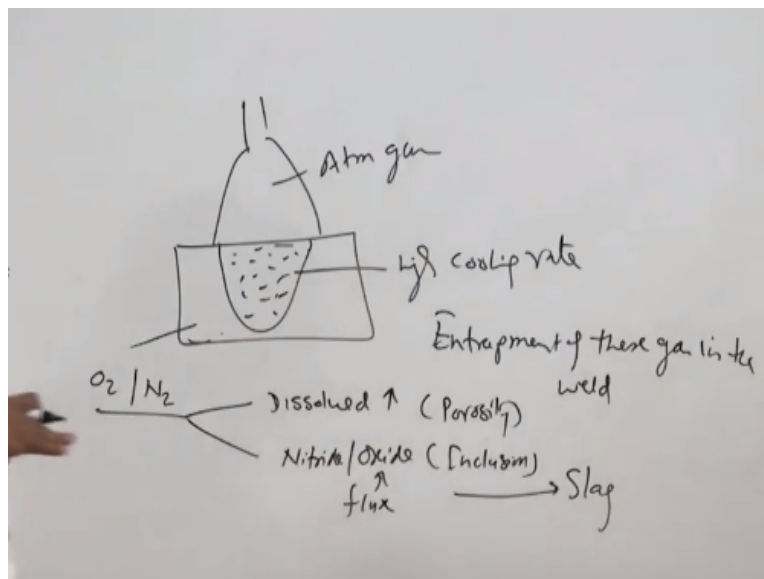 Atm gas
High cooling rate
Entrapment of these gas in the
weld
O2/N2
Dissolved ↑ (Porosity)
Nitride/Oxide (Inclusion)
↑
flux → Slag